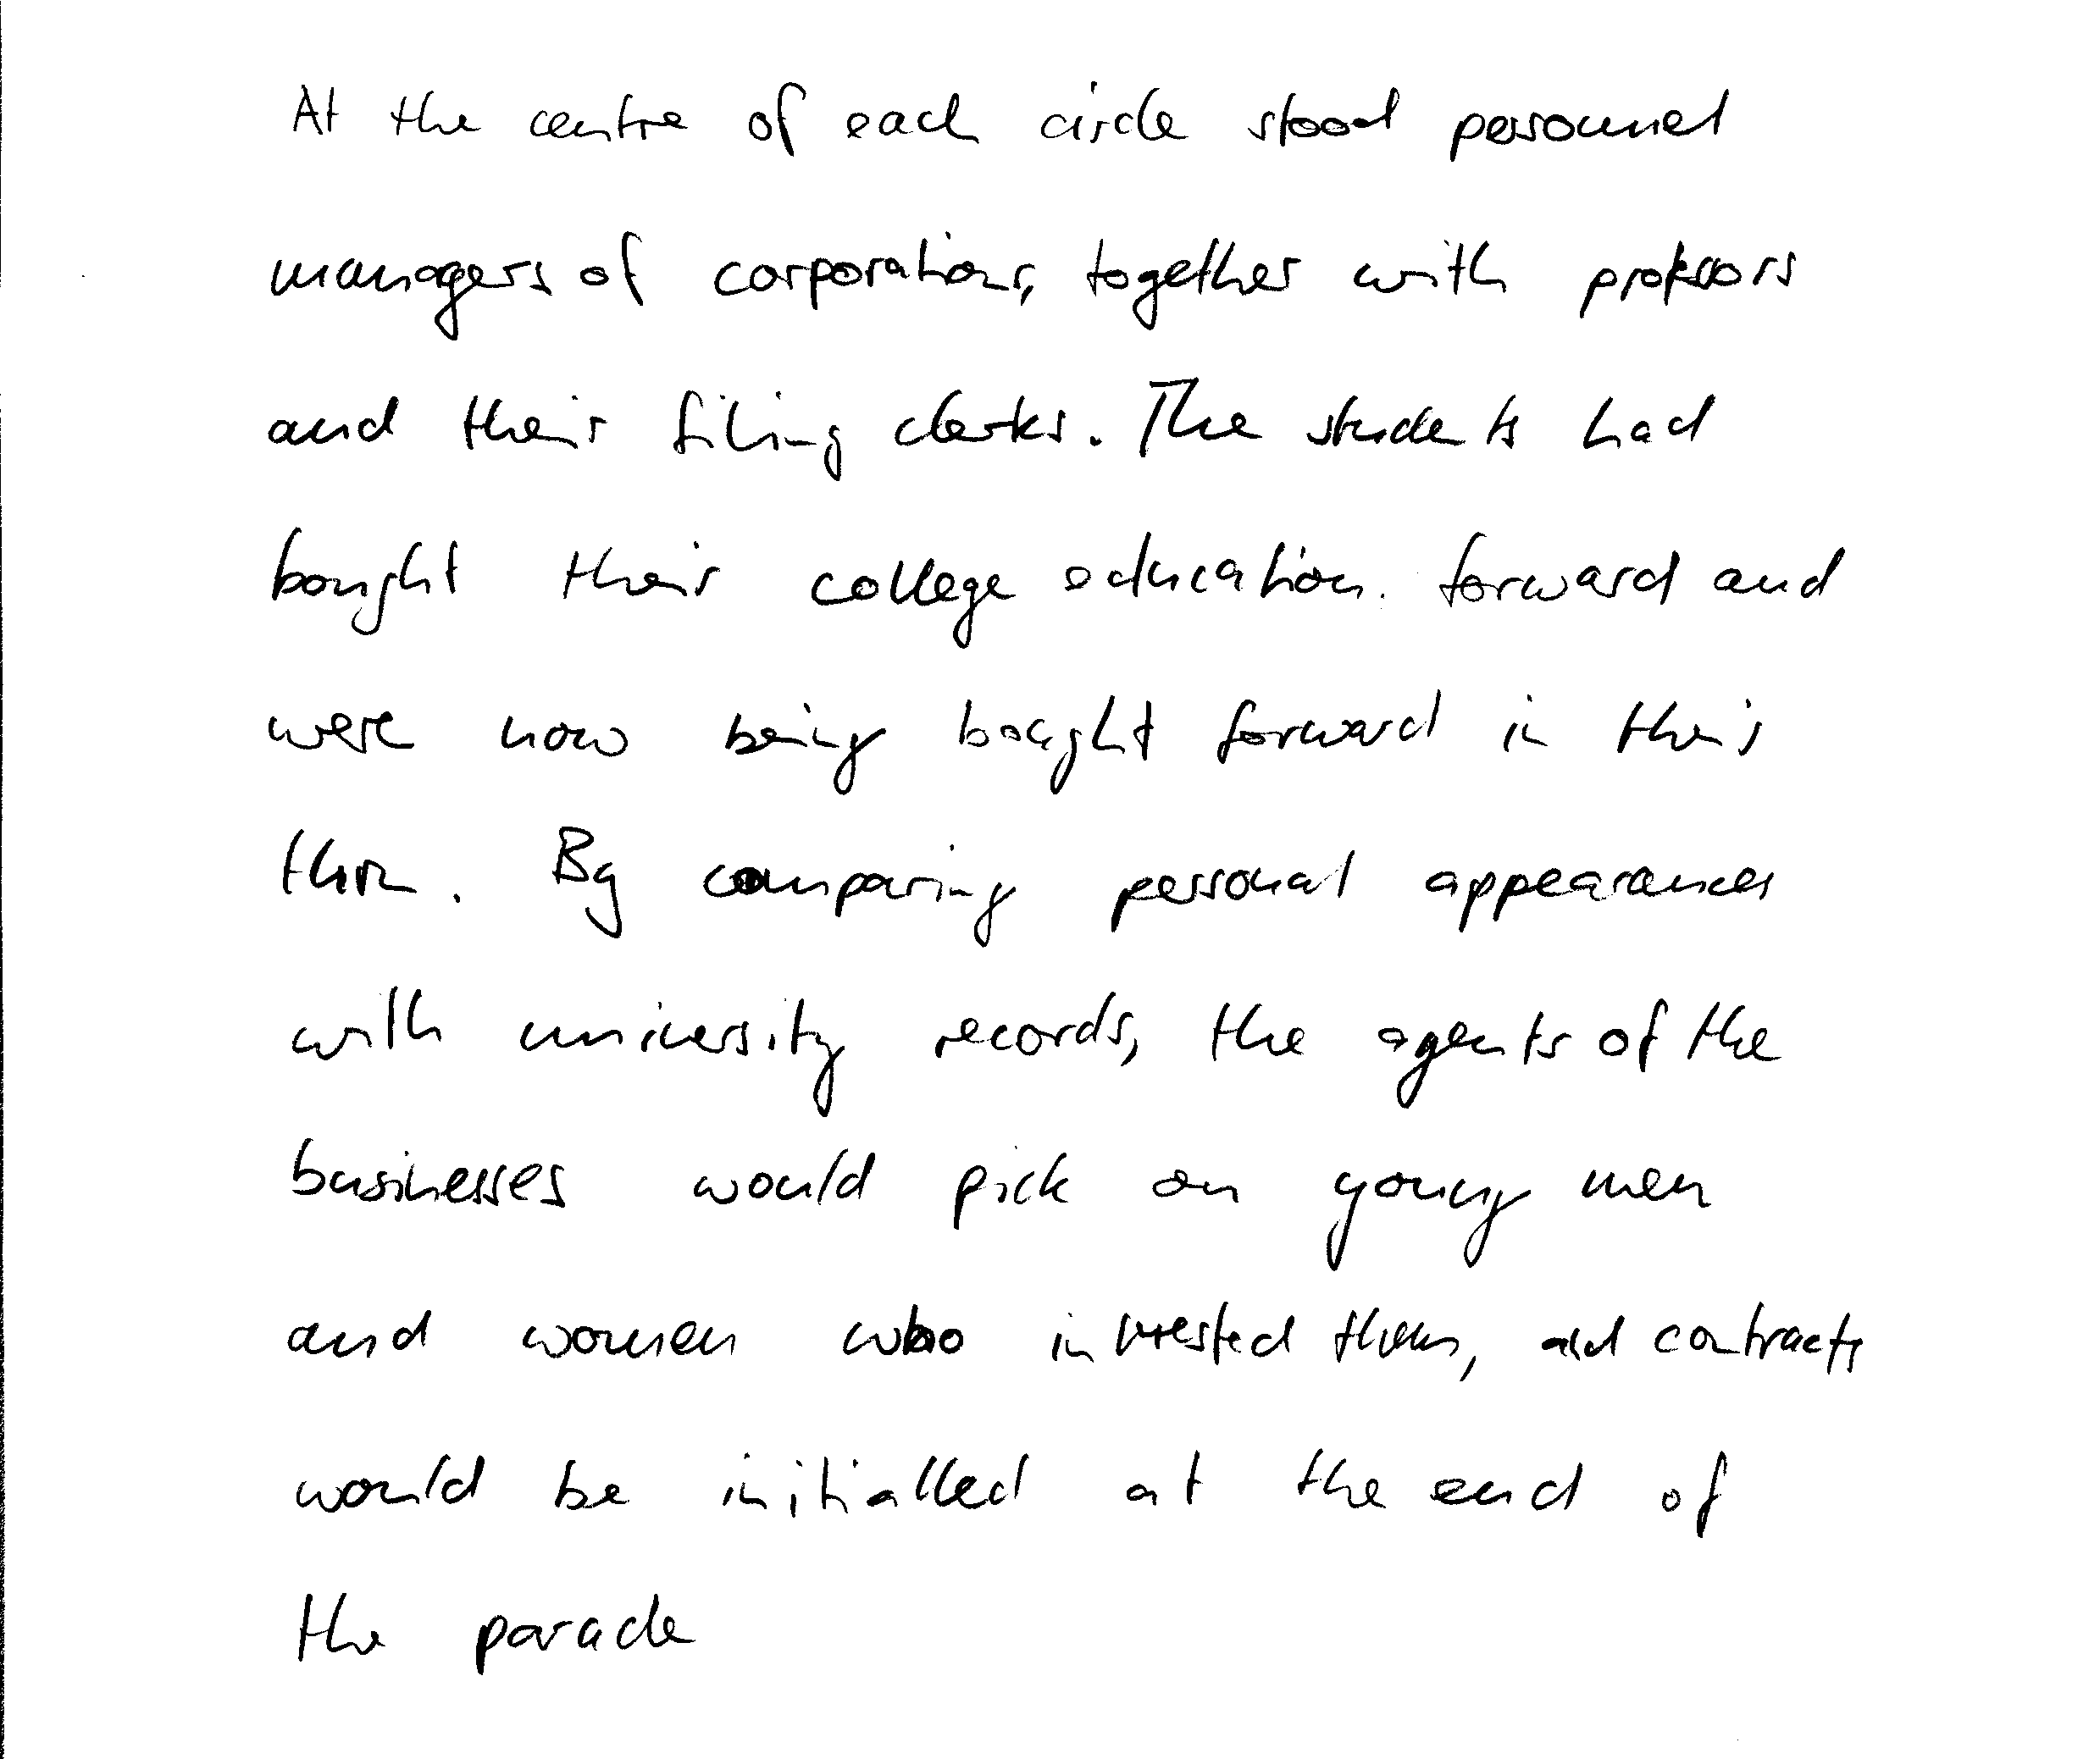 At the centre of each circle stood personnel
managers of corporations, together with professors
and their filing clerks. The students had
bought their college education forward and
were now being bought forward in their
. By comparing personal appearances
with university records, the agents of the
businesses would pick on young men
and women who intrested them, and contracts
would be initialled at the end of
the parade